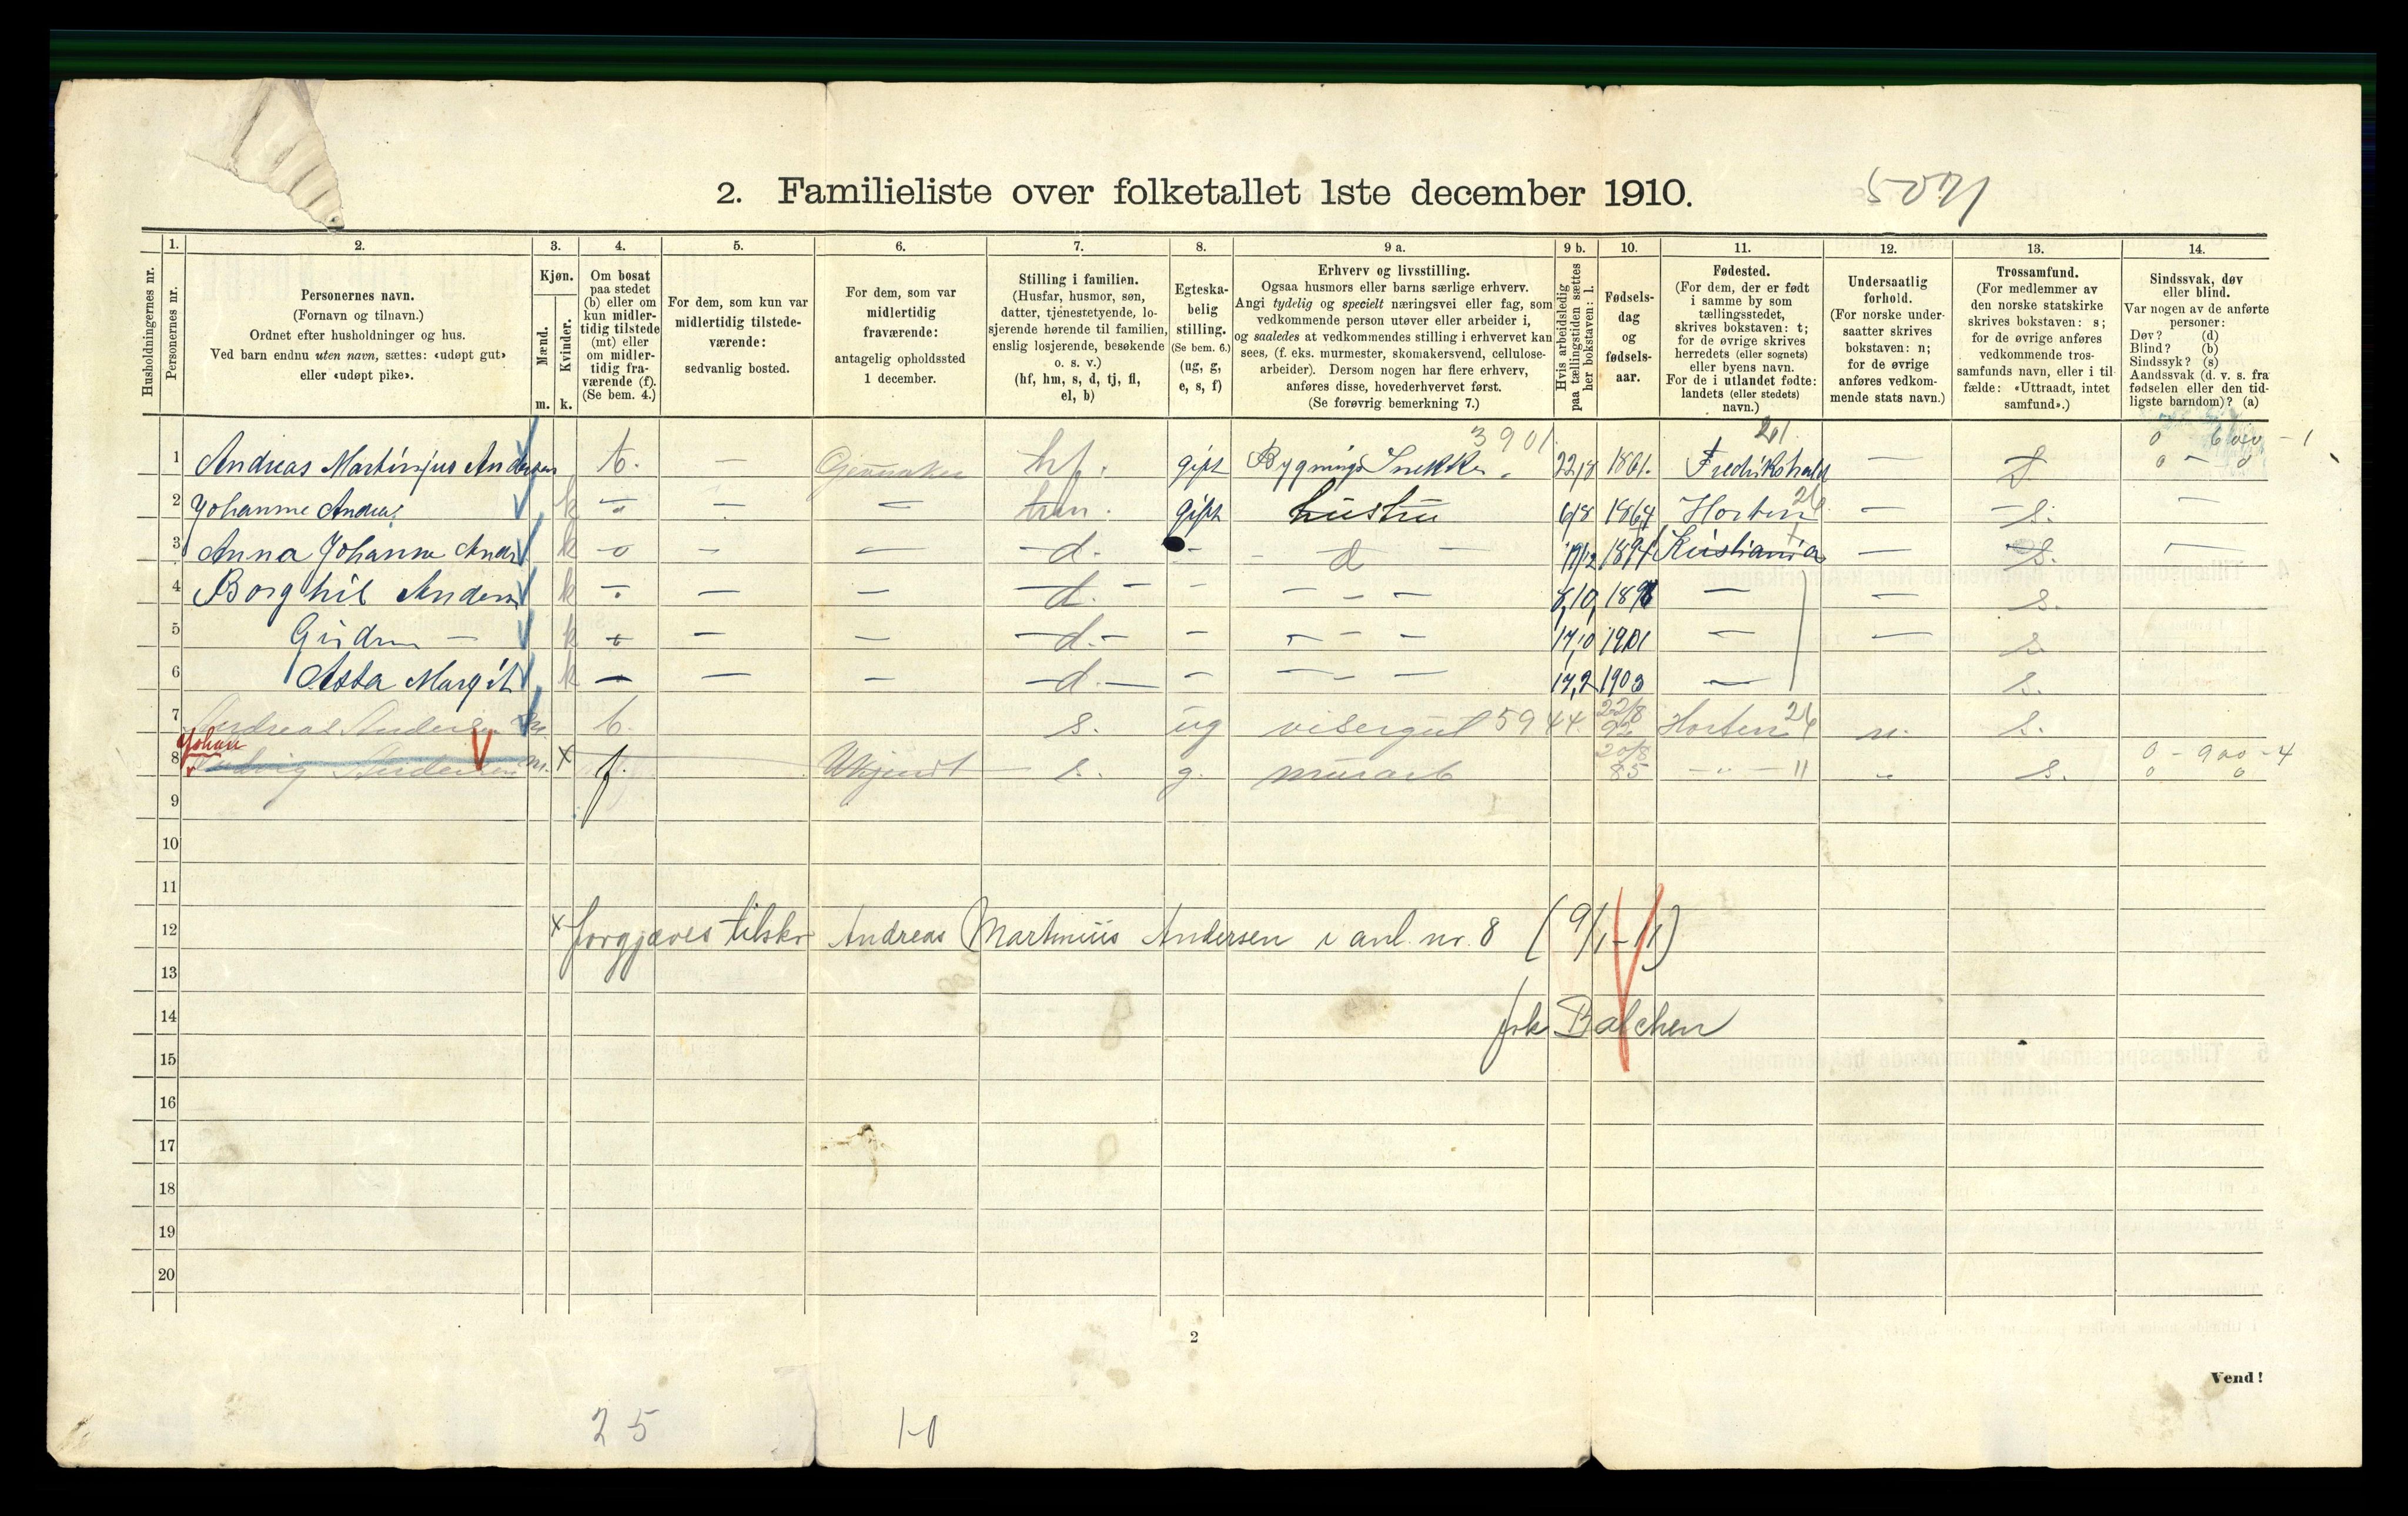 2. Familieliste over folketallet 1ste december 1910.
Husholdningernes nr.
1. Personernes nr.
2. Personernes navn.
(Fornavn og tilnavn.)
Ordnet efter husholdninger og hus.
Ved barn endnu uten navn, sættes: «udøpt gut»
eller «udøpt pike».
3. Kjøn.
Mænd. m.
Kvinder. k.
4. Om bosat
paa stedet
(b) eller om
kun midler-
tidig tilstede
(mt) eller
om midler-
tidig fra-
værende (f).
(Se bem. 4.)
5. For dem, som kun var
midlertidig tilstede-
værende:
sedvanlig bosted.
6. For dem, som var
midlertidig
fraværende:
antagelig opholdssted
1 december.
7. Stilling i familien.
(Husfar, husmor, søn,
datter, tjenestetyende, lo-
sjerende hørende til familien,
enslig losjerende, besøkende
o. s. v.)
(hf, hm, s, d, tj, fl,
el, b)
8. Egteska-
belig
stilling.
(Se bem. 6.)
(ug, g,
e, s, f)
9 a. Erhverv og livsstilling.
Ogsaa husmors eller barns særlige erhverv.
Angi tydelig og specielt næringsvei eller fag, som
vedkommende person utøver eller arbeider i,
og saaledes at vedkommendes stilling i erhvervet kan
sees, (f. eks. murmester, skomakersvend, cellulose-
arbeider). Dersom nogen har flere erhverv,
anføres disse, hovederhvervet først.
(Se forøvrig bemerkning 7.)
9 b. Hvis arbeidsledig
paa tællingstiden sættes
her bokstaven: l.
10. Fødsels-
dag
og
fødsels-
aar.
11. Fødested.
(For dem, der er født
i samme by som
tællingsstedet,
skrives bokstaven: t;
for de øvrige skrives
herredets (eller sognets)
eller byens navn.
For de i utlandet fødte:
landets (eller stedets)
navn.)
12. Undersaatlig
forhold.
(For norske under-
saatter skrives
bokstaven: n;
for de øvrige
anføres vedkom-
mende stats navn.)
13. Trossamfund.
(For medlemmer av
den norske statskirke
skrives bokstaven: s;
for de øvrige anføres
vedkommende tros-
samfunds navn, eller i til-
fælde: «Uttraadt, intet
samfund».)
14. Sindssvak, døv
eller blind.
Var nogen av de anførte
personer:
Døv? (d)
Blind? (b)
Sindssyk? (s)
Aandssvak (d. v. s. fra
fødselen eller den tid-
ligste barndom)? (a)
1 Andreas Martinius Andersen b. — hf. gift Bygnings Snekker. 3901 22/8 1861. Fredrikshald — s.
2 Johanne Anders k — — hm. gift hustru 6/8 1864 Horten — s. —
3 Anna Johanne Anders k — — d. — d — 1894 Kristiania — s. —
4 Borghil Anders k — — d. — — — 8,10, 1898 — — s.
5 Gudrun — k — — d. — — — 1901 — — s.
6 Asta Margit k — — — d. — — — — 17,2 1903 — s.
7 Andreas Andersen m. b. s. ug visergut 5944. 22/8 92 Horten n. s.
8 Johan Ludvig Andersen m. x f. Ukjendt — s. g. murarb 20/8 85 — " — " s. 0 - 900 - 4
9
10
11
12 x forgjæves tilskr Andreas Martinius Andersen i anl. nr. 8 (9/1-11)
13
14 frk Balchen
15
16
17
18
19
20
2
Vend!
25
10